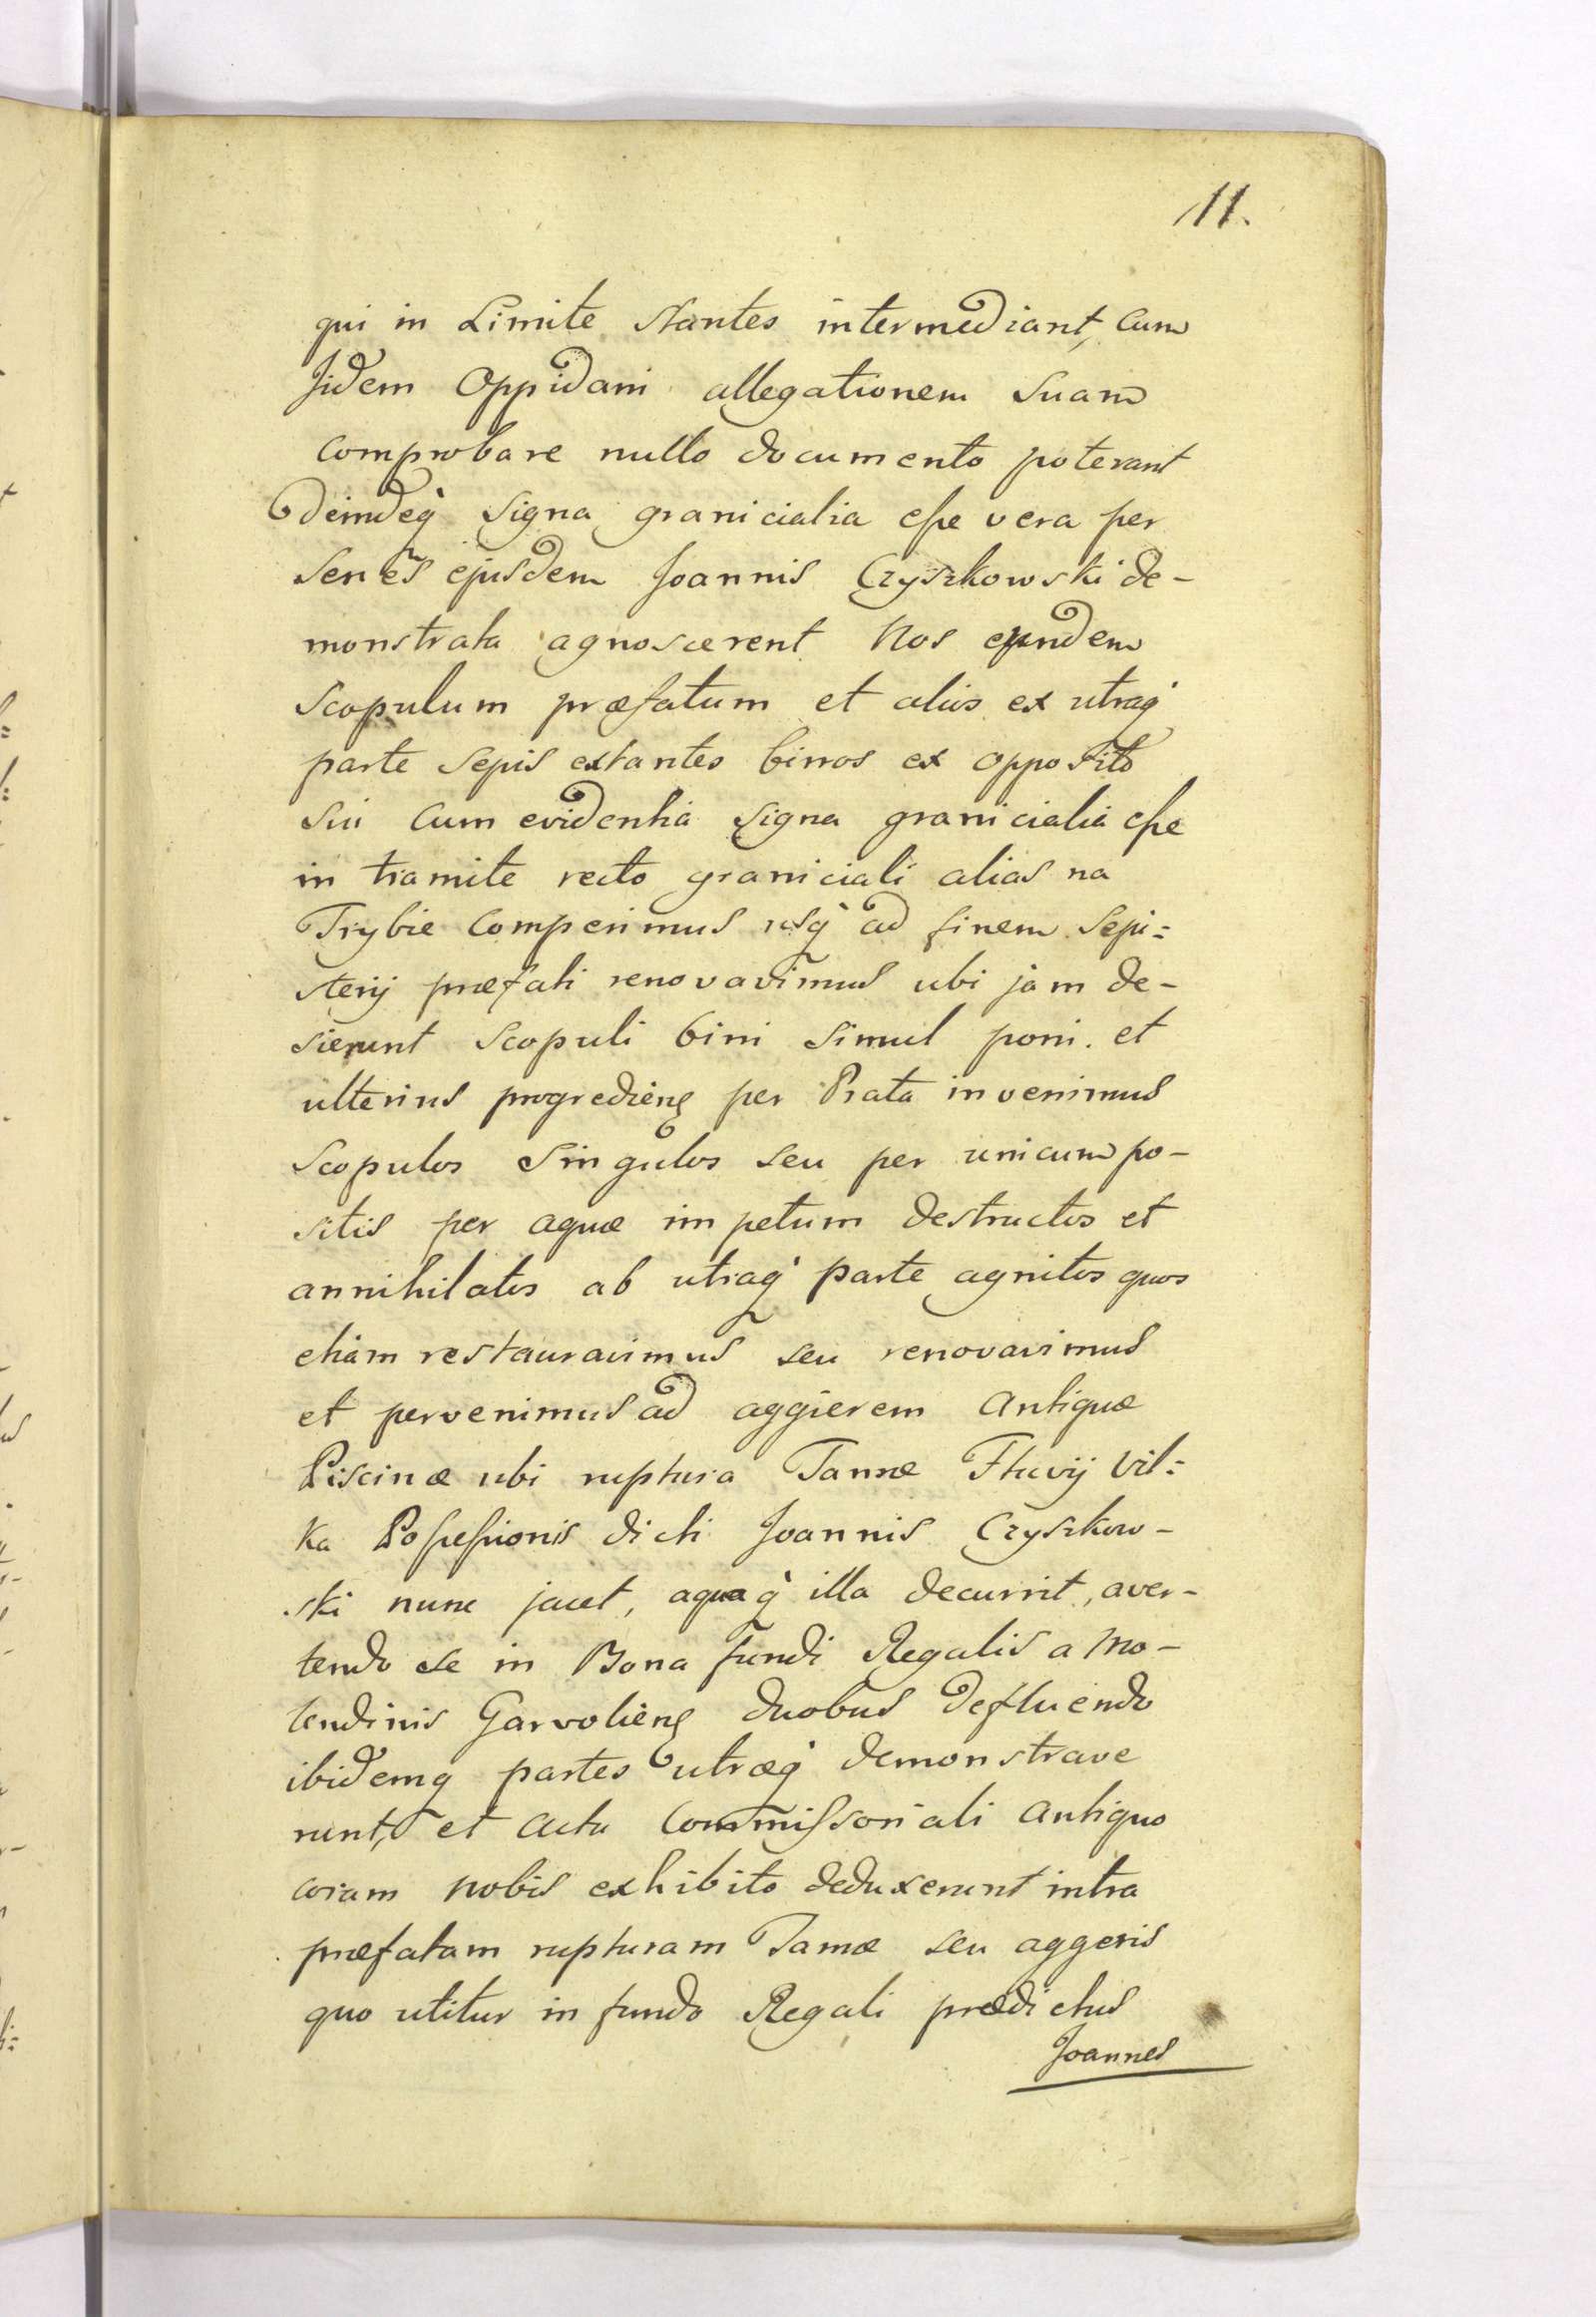 11.
qui in Limite stantes intermediant, cum
Jidem Oppidani allegationem Suam
comprobare nullo documento poterant
deindeq̀ Signa granicialia eſse vera per
Senes ejusdem Joannis Czyszkowski de-
monstrata agnoscerent Nos eundem
Scopulum præfatum et alios ex utraq̀
parte Sepis extantes binos ex opposito
Sui cum evidentia Signa granicialia eſse
in tramite recto graniciali alias na
Trybie comperimus usq̀ ad finem Sepi=
sterij præfati renovavimus ubi jam de-
sierunt Scopuli bini Simul poni. et
ulterius progredieng per Prata invenimus
Scopulos Singulos seu per unicum po-
sitis per aquæ impetum destructos et
annihilatos ab utraq̀ parte agnitos quos
etiam restauravimus seu renovavimus
et pervenimus ad aggierem Antiquæ
Piscinæ ubi ruptura Tamæ Fluvij Vil=
ka Poſseſsionis dicti Joannis Czyszkow-
ski nunc jacet, aquaq̀ illa decurrit, aver-
tendo se in Bona fundi Regalis a Mo-
lendinis Garvolieng duobus defluendo
ibidemq partes utræq̀ demonstrave
runt, et Actu Commiſsoriali Antiquo
coram nobis exhibito deduxerunt intra
præfatam rupturam Tamæ seu aggeris
quo utitur in fundo Regali prædictus
Joannes